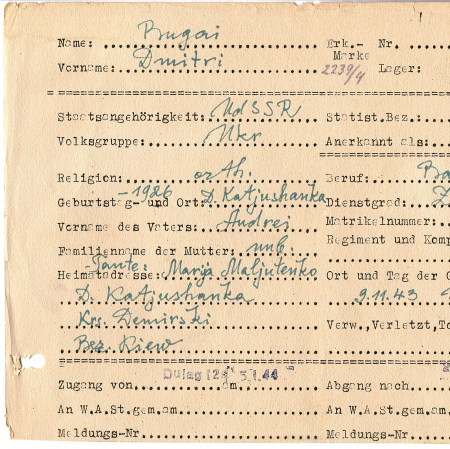 Name: Bugai Erk.- Nr.
Marke
Vorname: Dmitri 2239/4 Lager:
Staatsangehörigkeit: UdSSR Statist.Bez.:
Volksgruppe: Ukr Anerkannt als:
Religion: orth. Beruf: Ba
Geburtstag- und Ort: -1926 D. Katjushanka Dienstgrad:
Vorname des Vaters: Andrei Matrikelnummer:
Familienname der Mutter: unb. Regiment und Komp
Heimatadresse: -Tante: Marija Maljutenko Ort und Tag der G
D. Katjushanka 9.11.43
Krs. Demirski Verw.,Verletzt,To
Bez. Kiew
Dulag 124 3.1.44
Zugang von am Abgang nach
An W.A.St.gem.am An W.A.St.gem.am
Meldungs-Nr Meldungs-Nr